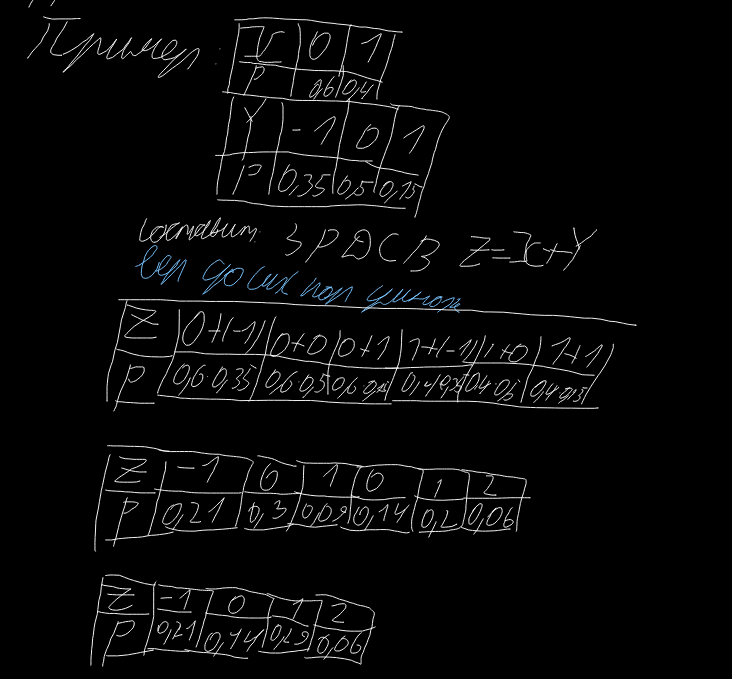 Пример:
X 0 1
P 0,6 0,4
Y -1 0 1
P 0,35 0,5 0,15
Составит ЗРДСВ Z=X+Y
вер до сих пор умнож
Z 0+(-1) 0+0 0+1 1+(-1) 1+0 1+1
P 0,6·0,35 0,6·0,5 0,6·0,15 0,4·0,35 0,4·0,5 0,4·0,15
Z -1 0 1 0 1 2
P 0,21 0,3 0,09 0,14 0,2 0,06
Z -1 0 1 2
P 0,21 0,44 0,29 0,06